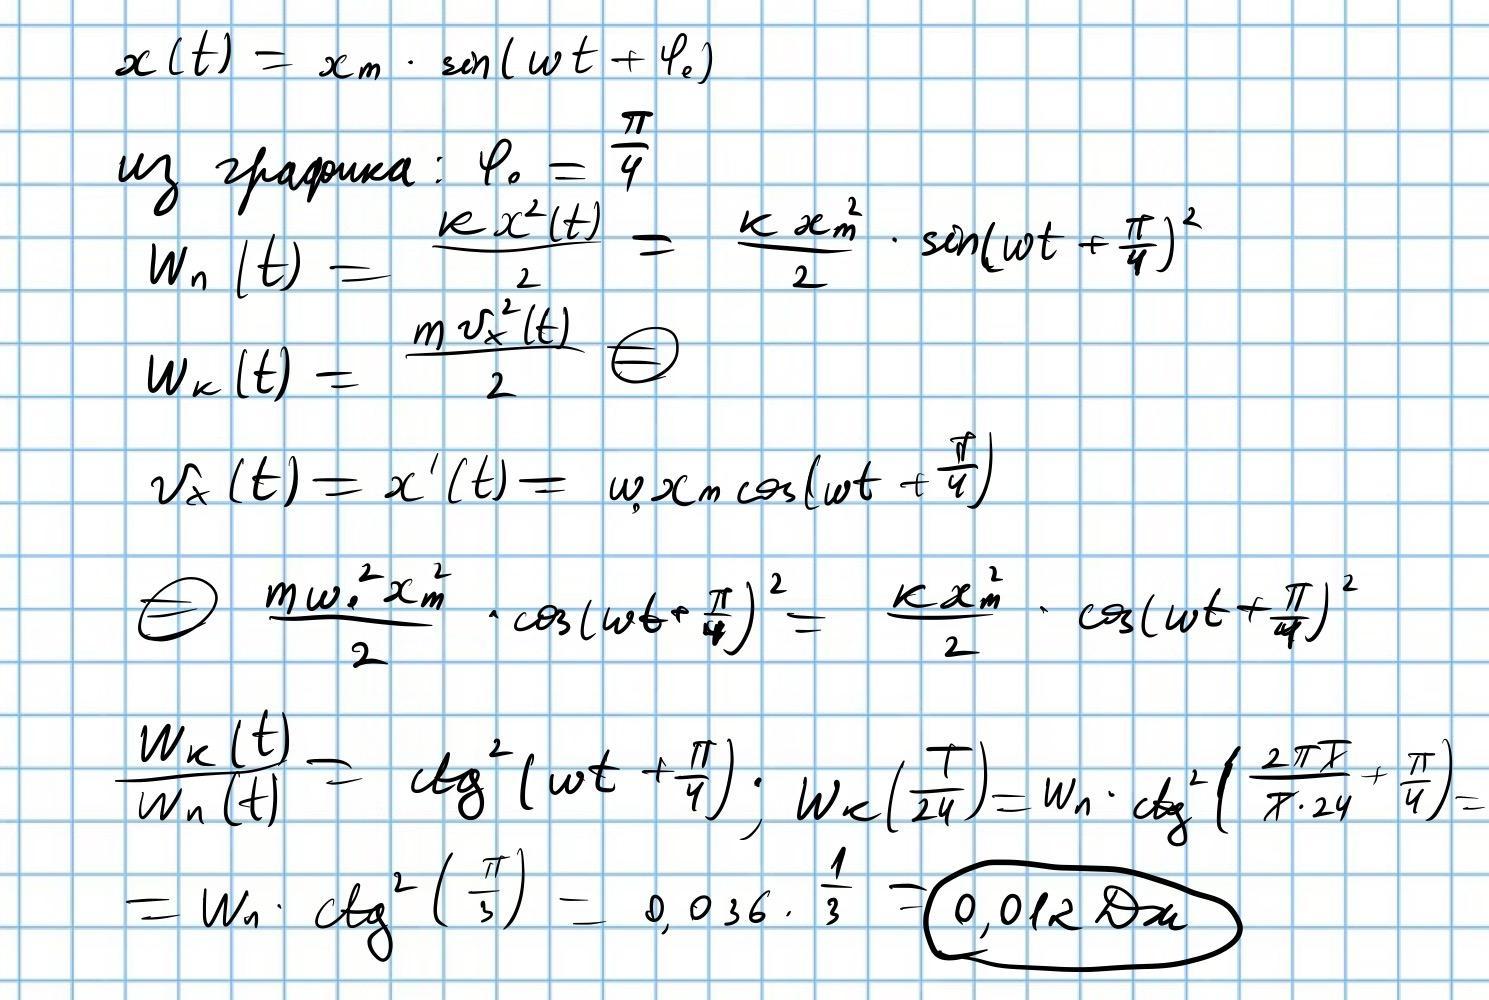 x(t) = xₘ · sin(ωt + φ₀)
из графика: φ₀ = π/4
Wп(t) = kx²(t)/2 = kxₘ²/2 · sin(ωt + π/4)²
Wк(t) = mvₓ²(t)/2 ⊜
vₓ(t) = x'(t) = ω₀xₘcos(ωt + π/4)
⊜ mω₀²xₘ²/2 · cos(ωt + π/4)² = kxₘ²/2 · cos(ωt + π/4)²
Wк(t)/Wп(t) = ctg²(ωt + π/4); Wк(T/24) = Wп · ctg²(2πT/T·24 + π/4) =
= Wп · ctg²(π/3) = 0,036 · 1/3 = 0,012 Дж